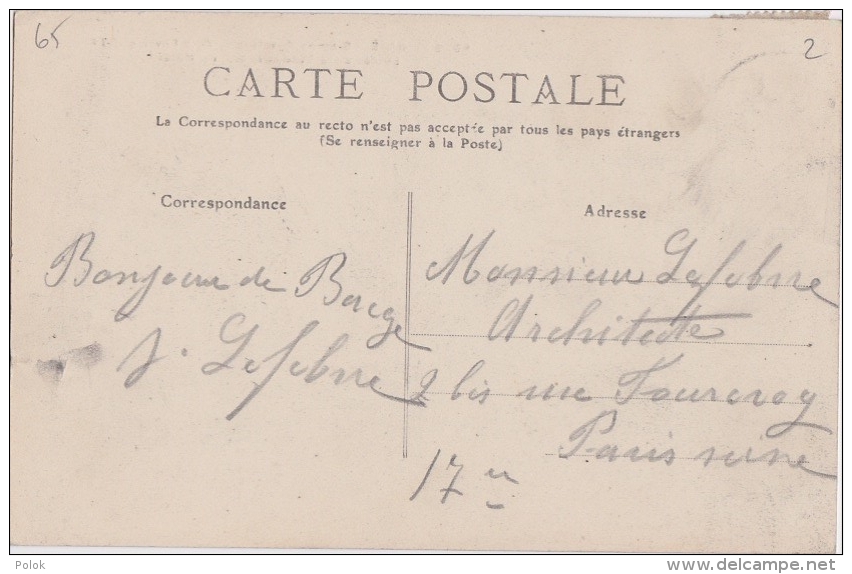 65
2
CARTE POSTALE
La Correspondance au recto n'est pas acceptée par tous les pays étrangers
(Se renseigner à la Poste)
Correspondance
Bonjour de
J. Lefebvre
Adresse
Monsieur Lefebvre
Architecte
2 bis rue Fourcroy
Paris seine
17e
Polok
www.delcampe.net